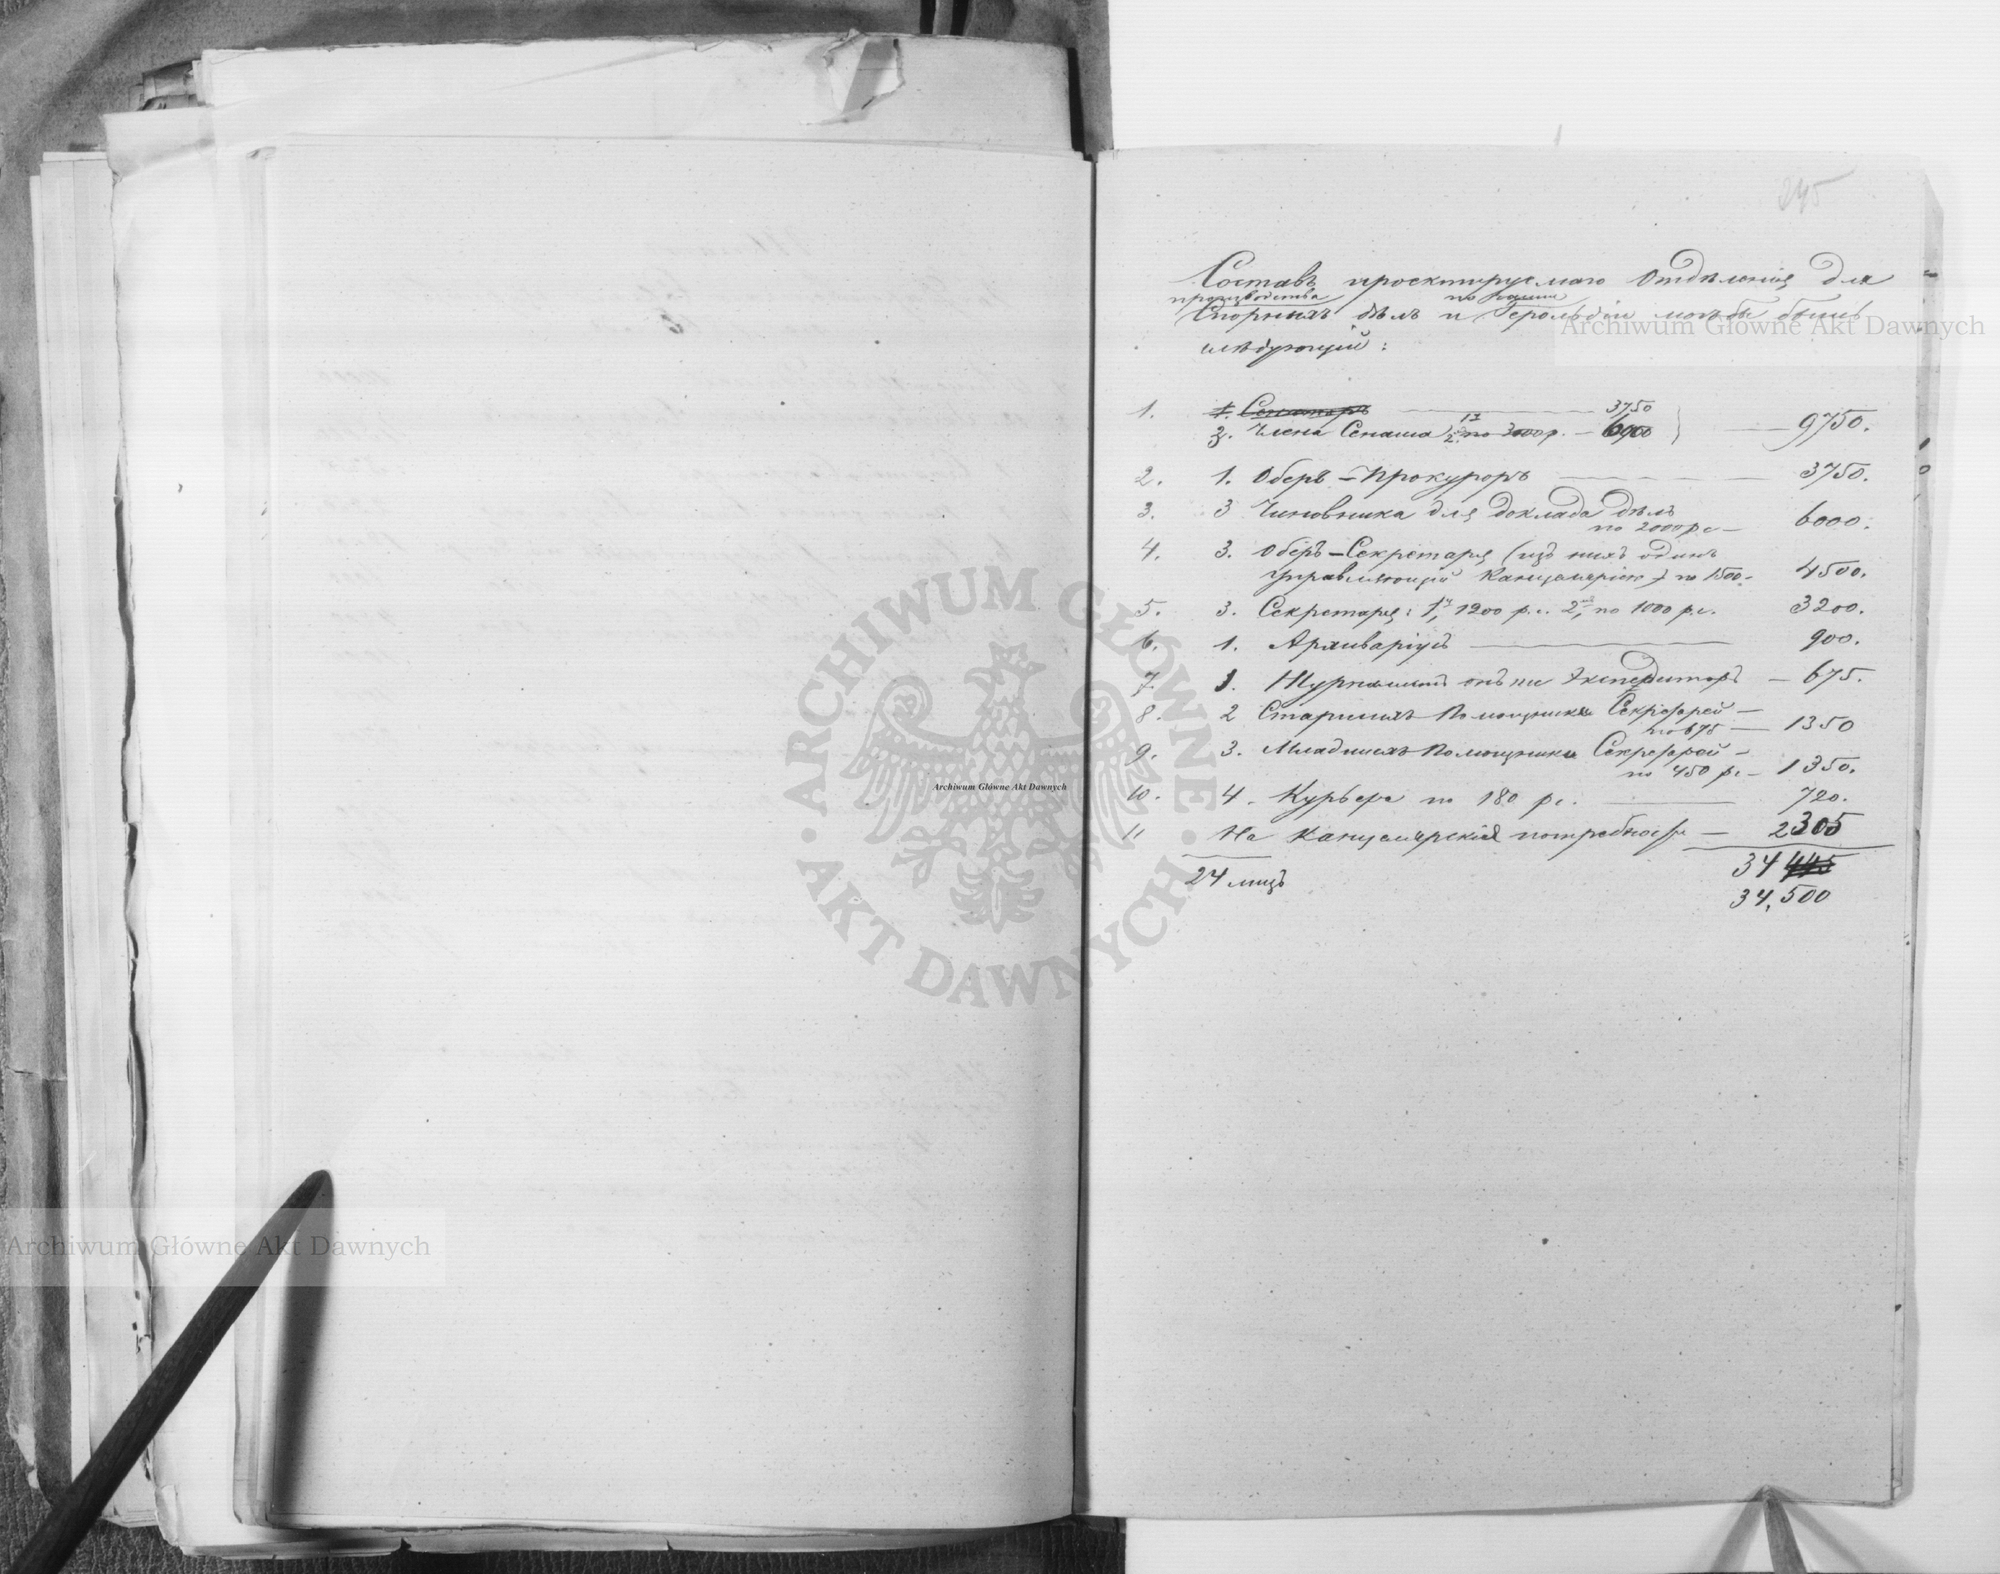 245
Составъ проектируемаго Отдѣленія для
производства по части
Спорныхъ дѣлъ и Герольдіи могъ бы быть
слѣдующій:
1. 1. Сенаторъ — 3750
3. Члена Сената 2. по 3000 р. — 6000 — 9750.
2. 1. Оберъ-Прокуроръ — 3750.
3. 3 Чиновника для доклада дѣлъ
по 2000 рс — 6000.
4. 3. Оберъ-Секретаря (изъ нихъ одинъ
управляющій Канцеляріею) по 1500 - 4500.
5. 3. Секретаря: 1, 1200 р.с. 2, по 1000 р.с. 3200.
6. 1. Архиваріусъ — 900.
7. 1. Журналистъ онъ же Экспедиторъ — 675.
8. 2 Старшихъ Помощника Секретарей —
по 675 — 1350
9. 3. Младшихъ Помощника Секретарей —
по 450 рс — 1350.
10. 4. Курьера по 180 рс. — 720.
11 На Канцелярскія потребности — 2305
24 лицъ 34 445
34,500
Archiwum Główne Akt Dawnych
ARCHIWUM GŁÓWNE AKT DAWNYCH
Archiwum Główne Akt Dawnych
Archiwum Główne Akt Dawnych